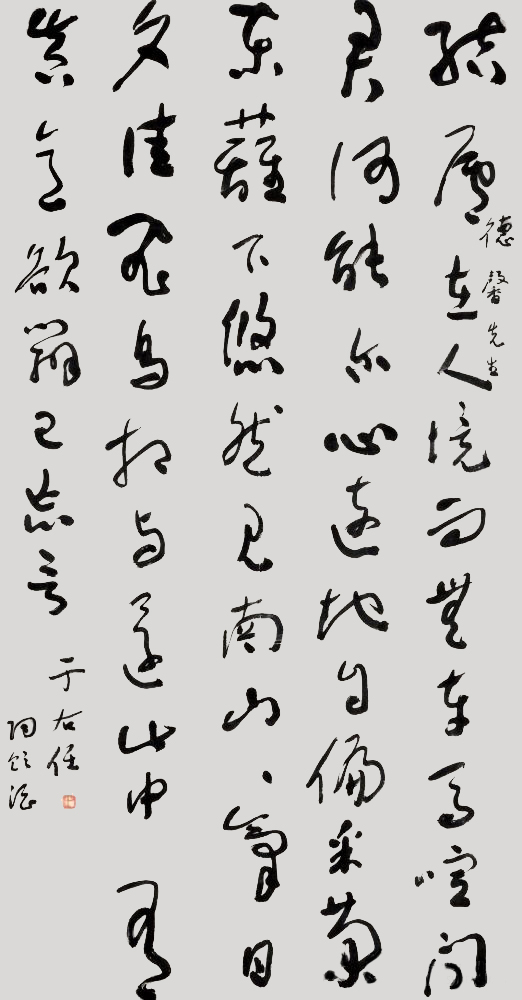 結廬在人境而無車馬喧問
德馨先生
君何能尔心遠地自偏采菊
東籬下悠然見南山、氣日
夕佳飛鳥相与還此中有
真意欲辨已忘言
于右任
陶飲酒